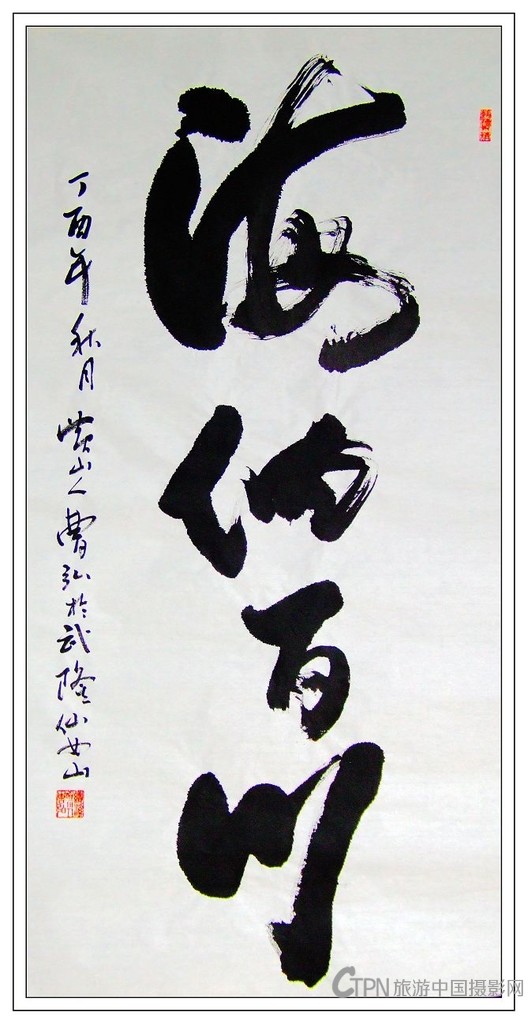 海纳百川
丁酉年秋月黄山人曹弘於武隆仙女山
CTPN旅游中国摄影网